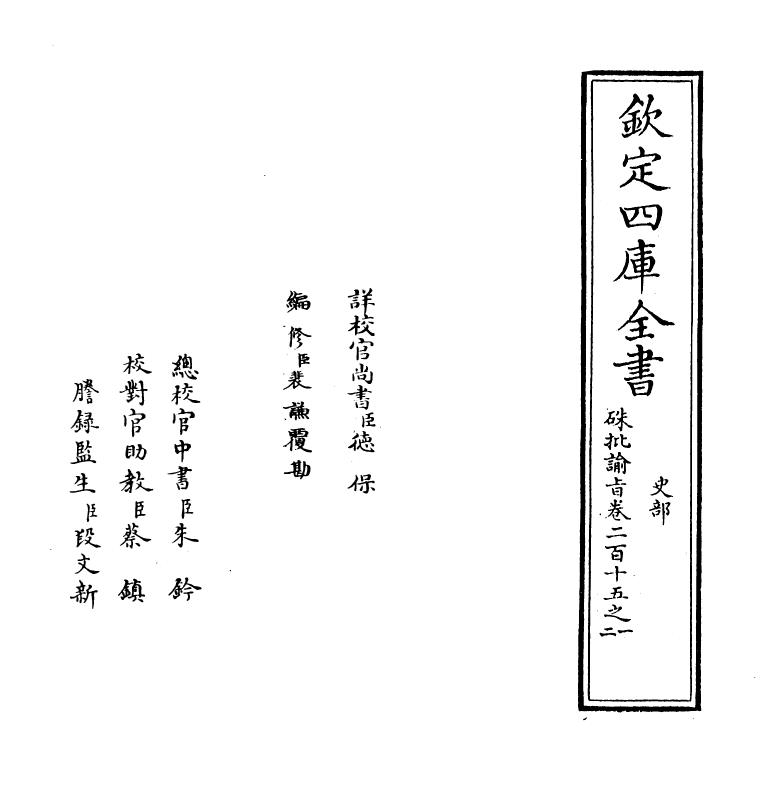 欽定四庫全書
史部
硃批諭旨卷二百十五之一
二
詳校官尚書臣德保
編修臣裴謙覆勘
總校官中書臣朱鈐
校對官助教臣蔡鎮
謄錄監生臣段文新